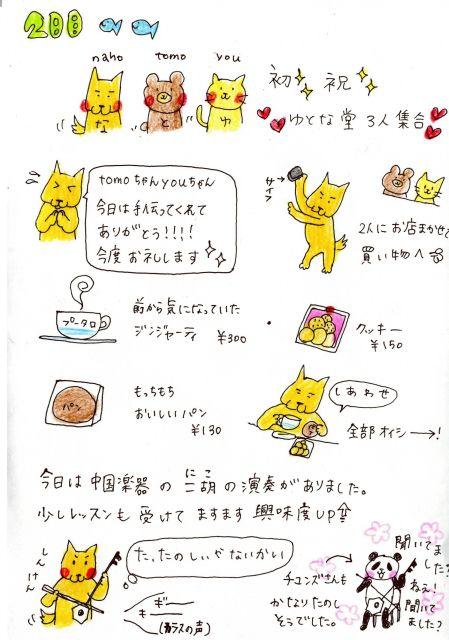 200
naho tomo you
な と ゆ
初 祝
ゆとな堂 3人集合
tomoちゃんyouちゃん
今日は手伝ってくれて
ありがとう!!!!
今度お礼します
サイフ
2人にお店まかせて
買い物へ
プータロ
前から気になっていた
ジンジャーティ
¥300
クッキー
¥150
パン
もっちもち
おいしいパン
¥130
しあわせ
全部オイシー!
今日は中国楽器の二胡の演奏がありました。
にこ
少しレッスンも受けてますます興味度UP
しんけん
た、たのしいやないかい
ギー
キー
(カラスの声)
チュンズさんも
かなりたのし
そうでした。
聞いてま
した?
ねぇ!
聞いて
ました?